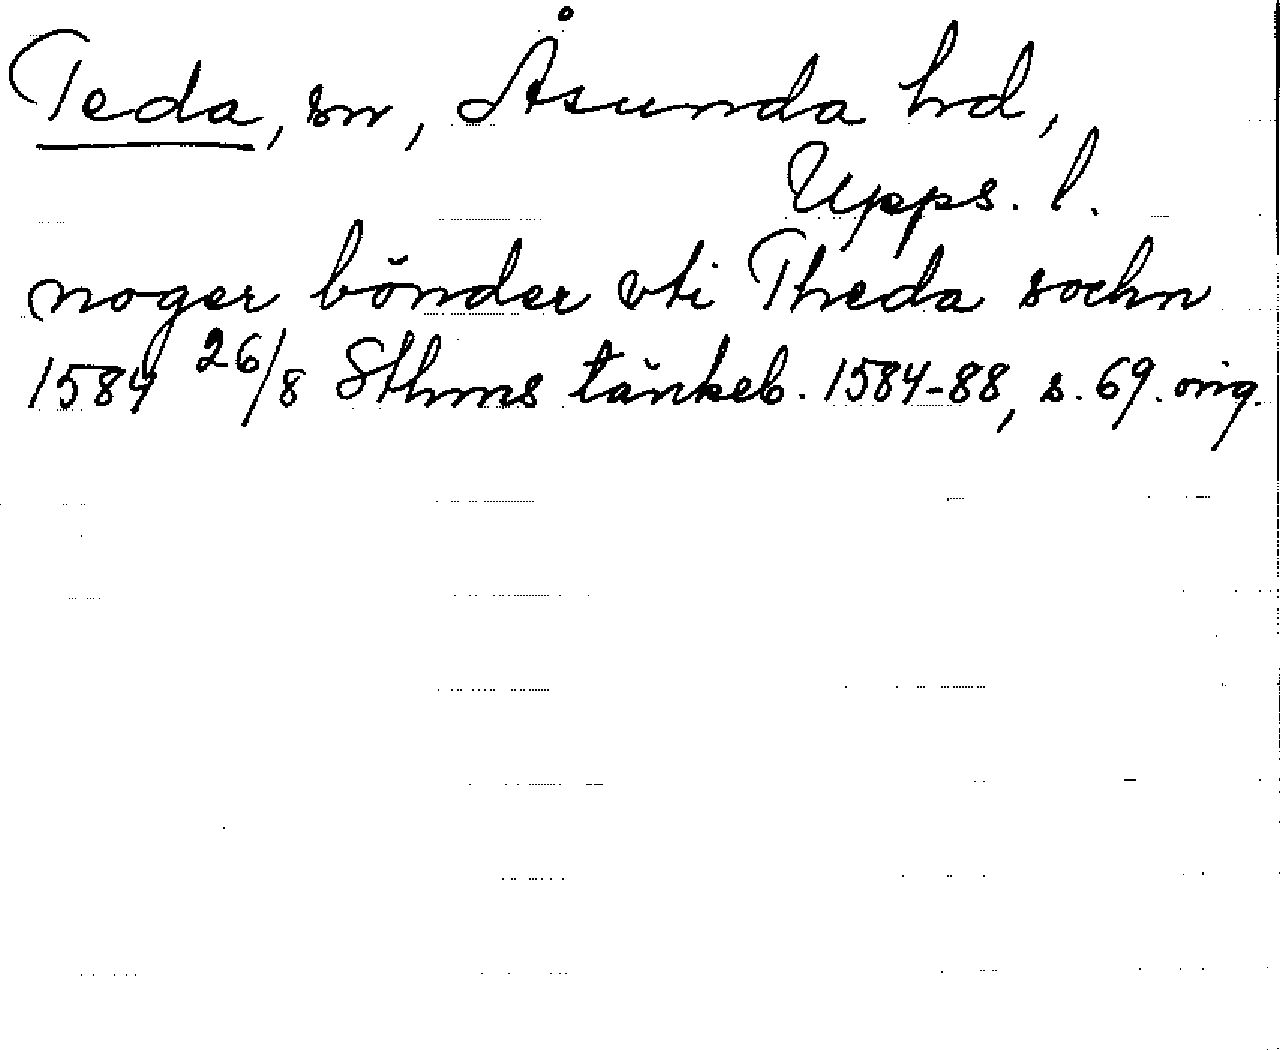 Teda, sn, Åsunda hd,
Upps. l.
noger bönder vti Theda sochn
1584 26/8 Sthms tänkeb. 1584-88, s. 69. orig.